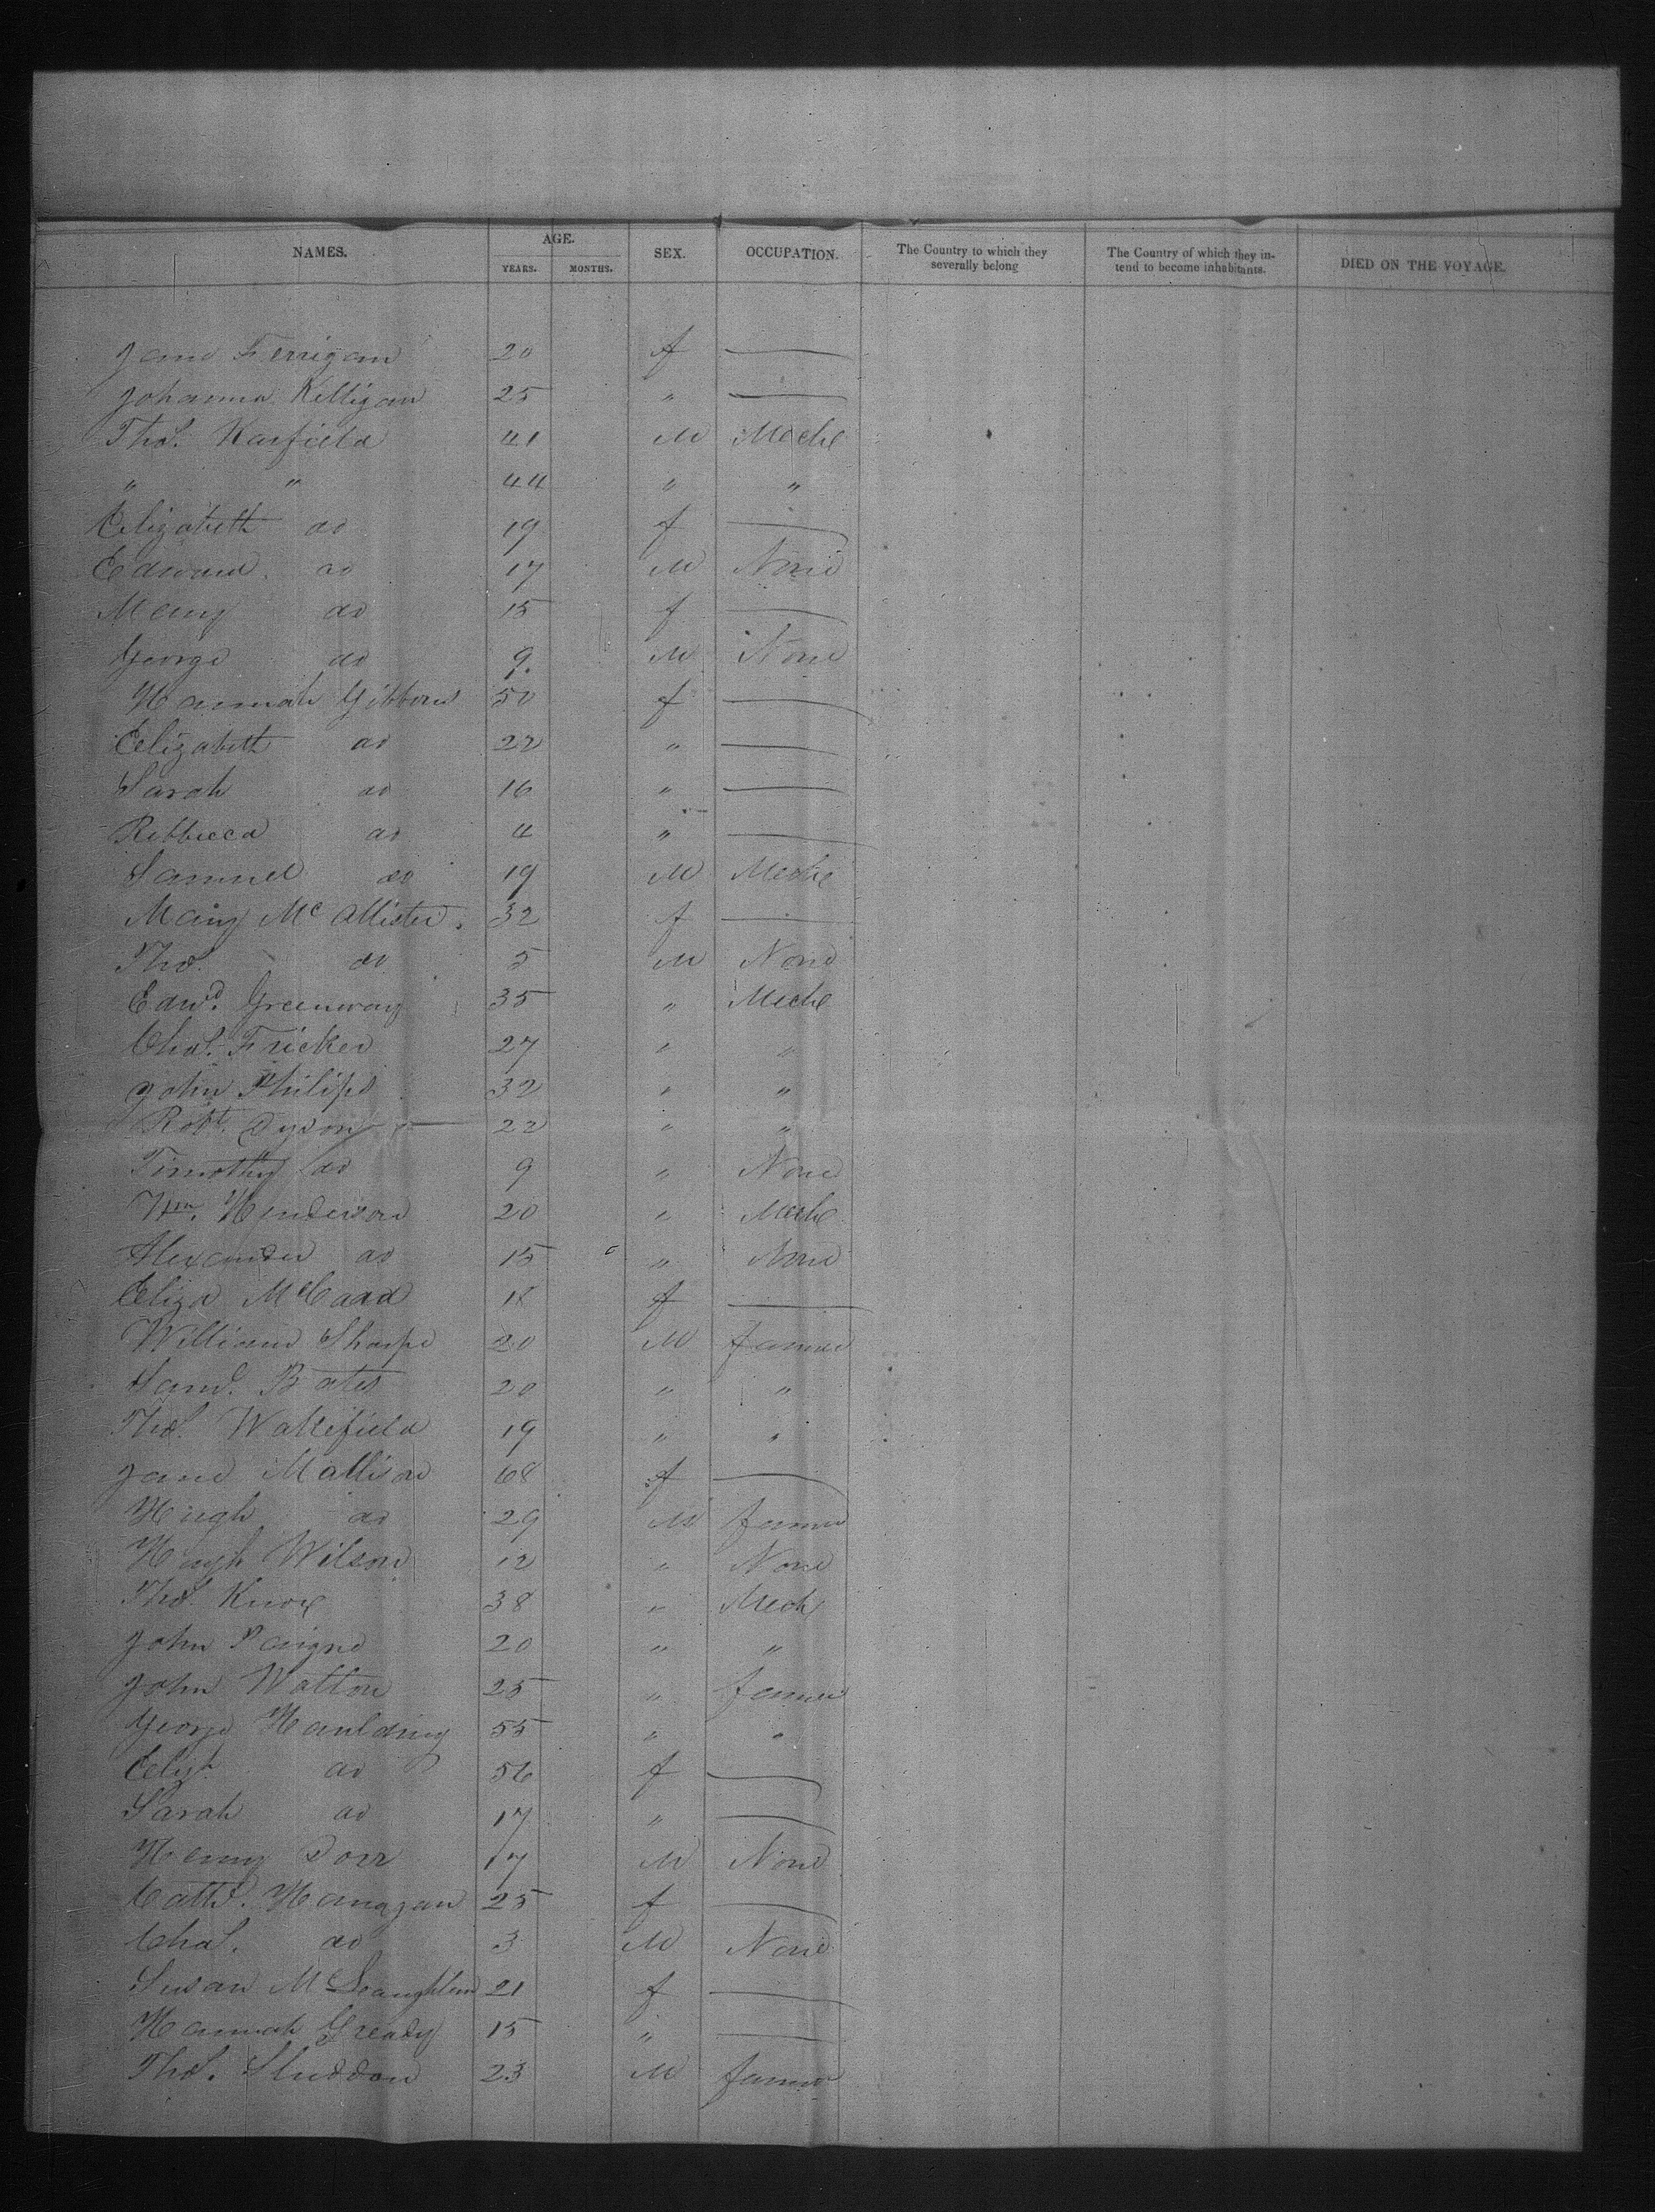 NAMES. AGE. SEX. OCCUPATION. The Country to which they severally belong The Country of which they intend to become inhabitants. DIED ON THE VOYAGE.
YEARS. MONTHS.
Jane Ferrigan 20 f —
Johanna Killigan 25 " —
Thos. Harfield 41 M Mechc
" " 44 " "
Elizabeth do 19 f —
Edward do 17 M None
Mary do 15 f —
George do 9. M None
Hannah Gibbons 50 f —
Elizabeth do 22 " —
Sarah do 16 " —
Rebbecca do 4 " —
Samuel do 19 M Mechc
Mary McAllister. 32 f —
Thos. do 5 M None
Edwd. Greenway 35 " Mechc
Chas. Fricker 27 " "
John Philips 32 " "
Robt. Dyson 22 " "
Timothy do 9 " None
Wm. Henderson 20 " Mechc
Alexander do 15 " None
Eliza McCaad 18 f —
William Sharpe 20 M farmer
Saml. Bates 20 " "
Thos. Wakefield 19 " "
Jane Mallison 68 f —
Hugh do 29 M farmer
Hugh Wilson 12 " None
Thos. Knox 38 " Mech
John Paigne 20 " "
John Watton 25 " farmer
George Haulding 55 " "
Elizh do 56 f —
Sarah do 17 " —
Henry Dorr 17 M None
Cathe. Hanagan 25 f —
Chas. do 3 M None
Susan McLaughlin 21 f —
Hannah Gready 15 " —
Thos. Sluddon 23 M farmer